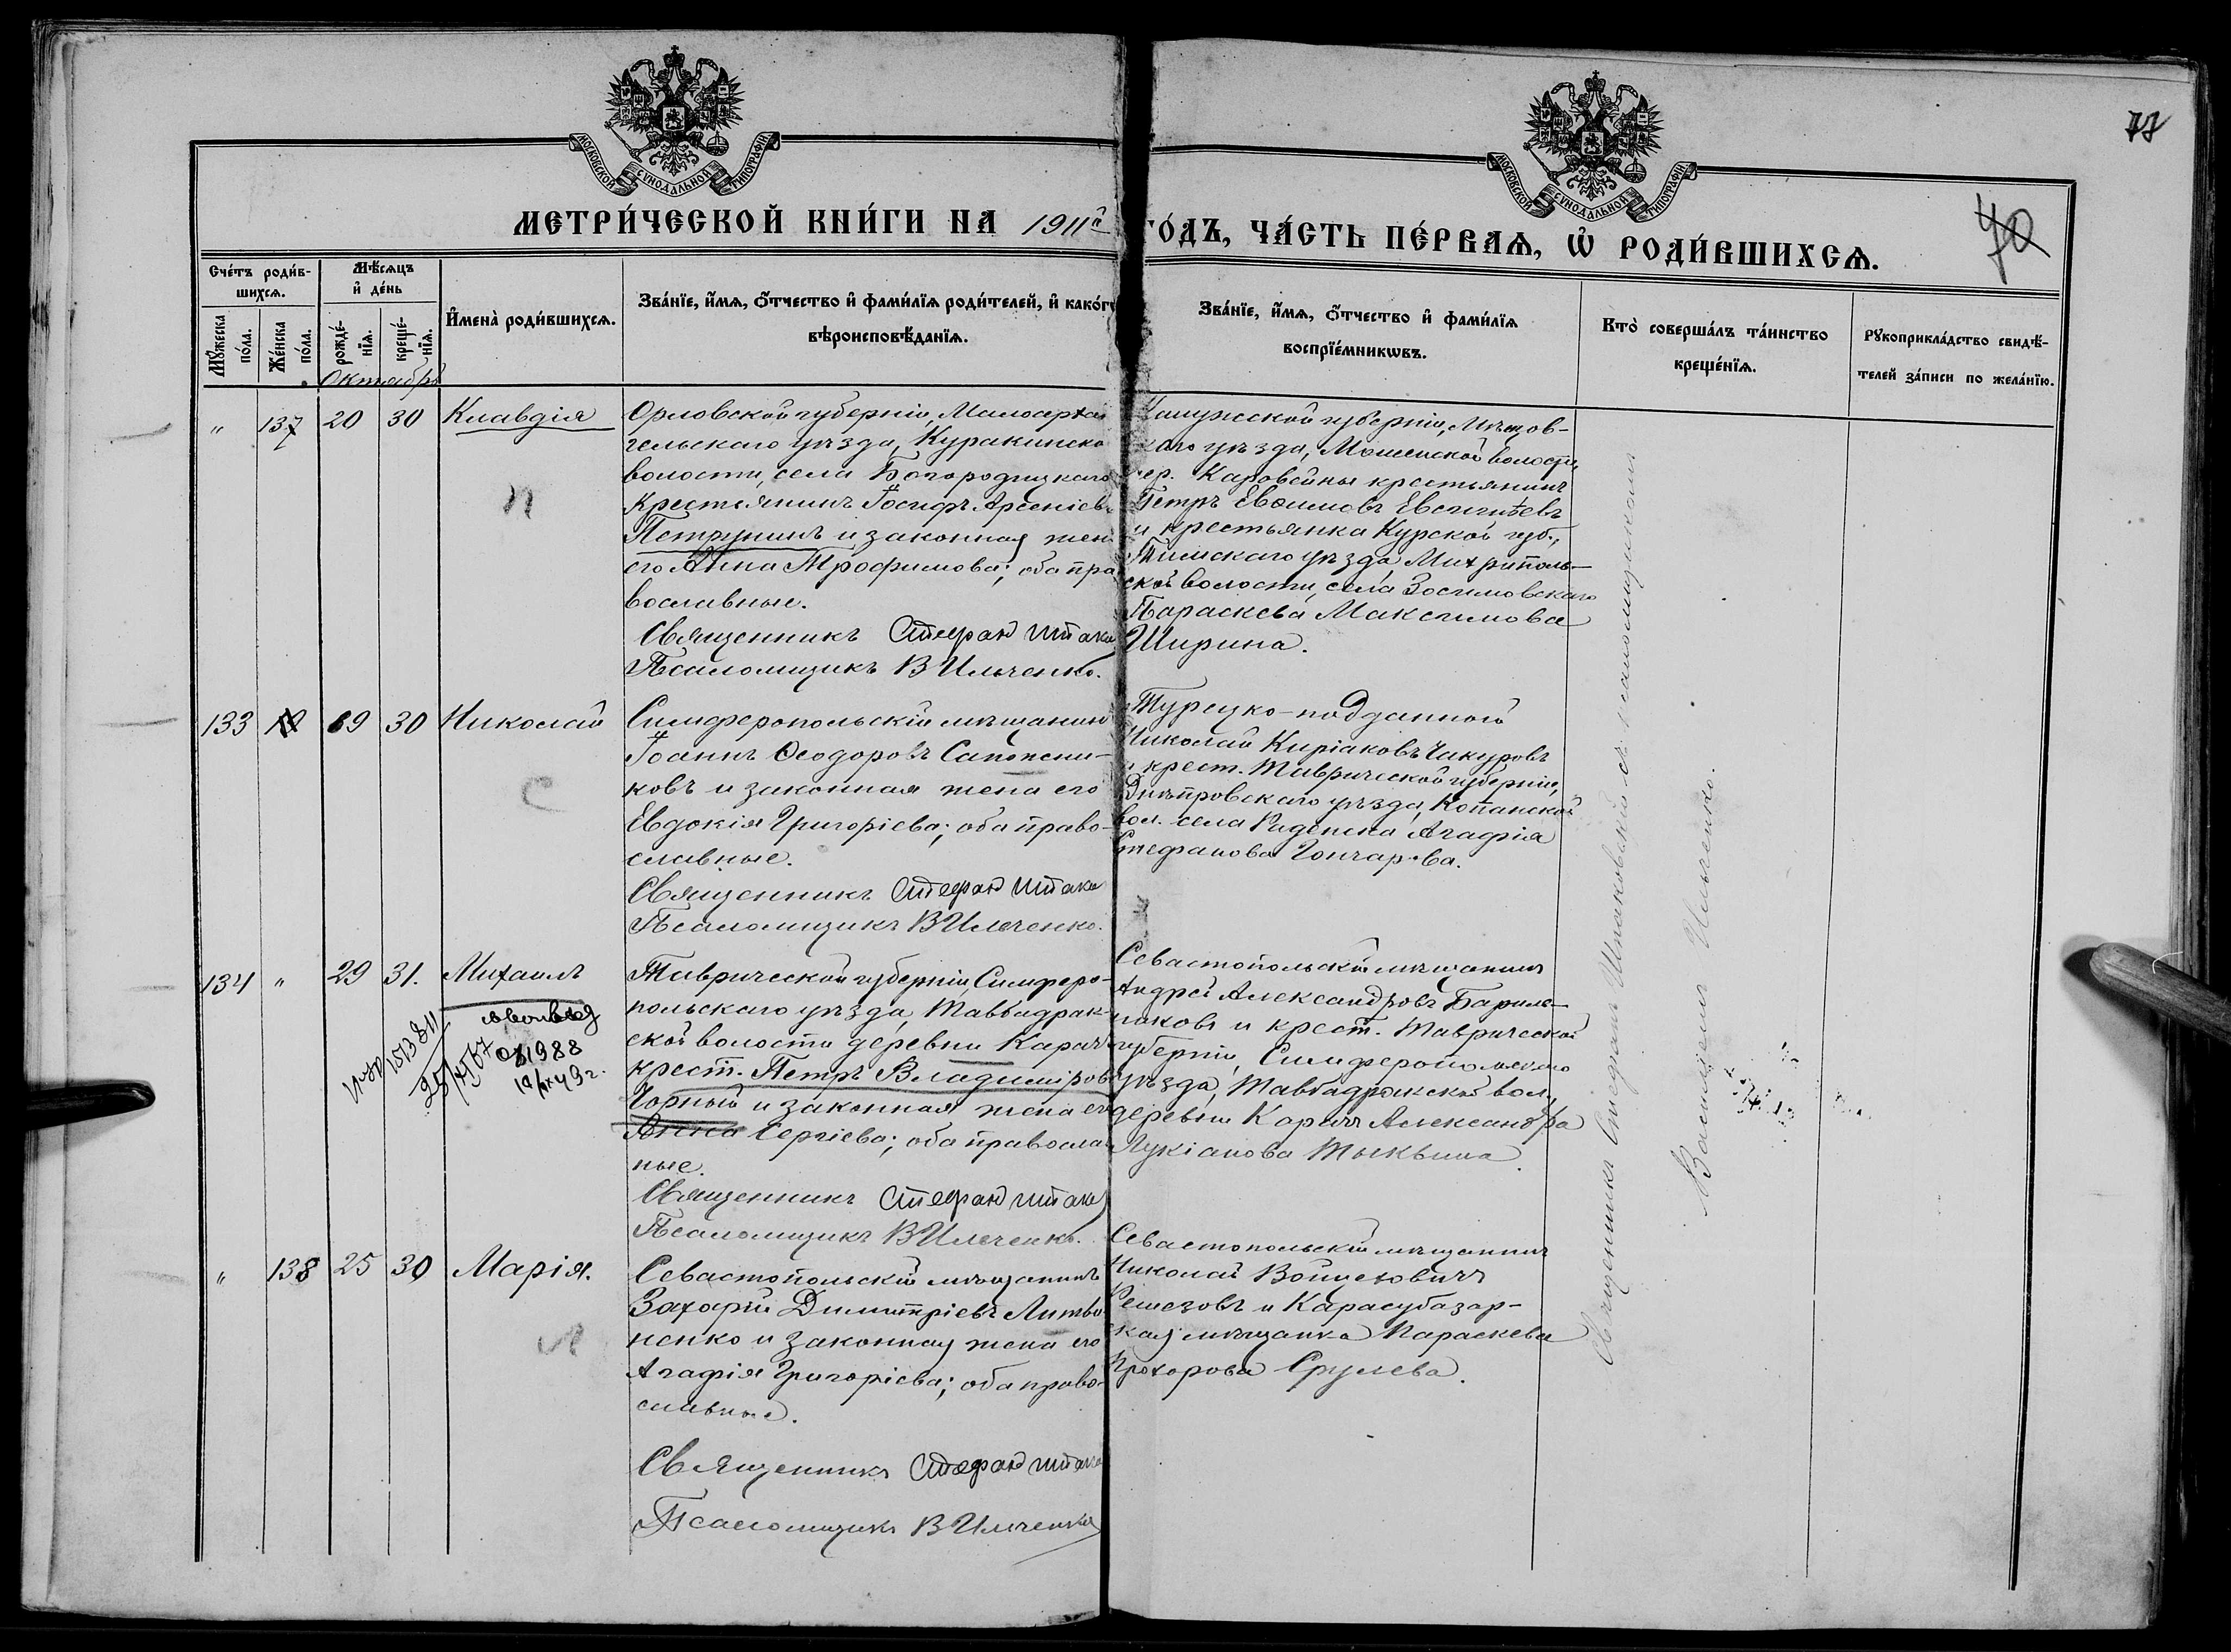 МОСКОВСКОЙ СѴНОДАЛЬНОЙ ТИПОГРАФІИ
МОСКОВСКОЙ СѴНОДАЛЬНОЙ ТИПОГРАФІИ
77
70
МЕТРИ́ЧЕСКОЙ КНИ́ГИ НА 1911й
ГО́ДЪ, ЧА́СТЬ ПЕ́РВАѦ, Ѡ҆ РОДИ́ВШИХСѦ.
Сче́тъ роди́в-
шихсѧ.
Мꙋ́жеска по́ла.
Же́нска по́ла.
Мѣ́сѧцъ
и҆ де́нь
рожде́-
нїѧ.
креще́-
нїѧ.
И҆мена̀ роди́вшихсѧ.
Зва́нїе, и҆́мѧ, ѻ҆́тчество и҆ фами́лїѧ роди́телей, и҆ како́г
вѣроисповѣ́данїѧ.
Зва́нїе, и҆́мѧ, ѻ҆́тчество и҆ фами́лїѧ
воспрїе́мникѡвъ.
Кто̀ соверша́лъ та́инство
креще́нїѧ.
Рꙋкоприкла́дство свидѣ́-
телей за́писи по жела́нїю.
Октябрь
" 137 20 30 Клавдія
Орловской губерніи, Малоархан
гельскаго уѣзда, Куракинско
волости, села Богородицкаго
крестьянинъ Іосифъ Арсеніевъ
Петрунинъ и законная жен
его Анна Трофимова; оба пра
вославные.
Священникъ Стефан Шпако
Псаломщикъ В Ильченко.
Калужской губерніи, Мѣщов-
скаго уѣзда, Мошенской волости,
дер. крестьянинъ
Петръ Евѳимовъ Евсигнѣевъ
и крестьянка Курской губ.,
Тимскаго уѣзда,
ской волости, села
Параскева Максимова
Ширина.
133 29 30 Николай
Симферопольскій мѣщанинъ
Іоаннъ Ѳеодоровъ Сапожни-
ковъ и законная жена его
Евдокія Григоріева; оба право-
славные.
Священникъ Стефан Шпако
Псаломщикъ В Ильченко.
Турецко-подданной
Николай Киріаковъ Чакуровъ
и крест. Таврической губерніи,
Днѣпровскаго уѣзда, Копанской
вол. села Раденска Агафія
Стефанова Гончарова.
134 " 29 31. Михаилъ
Таврической губерніи, Симферо-
польскаго уѣзда, Тавбадрак-
ской волости деревни Карач
крест. Петръ Владиміров
Чорный и законная жена его
Анна Сергіева; оба православ
ные.
Священникъ Стефан Шпако
Псаломщикъ В Ильченко.
Севастопольскій мѣщанинъ
Андрей Александровъ
и крест. Таврической
губерніи, Симферопольскаго
уѣзда, Тавбадракской вол.,
деревни Карачъ Александра
Лукіанова
" 138 25 30 Марія.
Севастопольскій мѣщанинъ
Захарій Димитріевъ Литви
ненко и законная жена его
Агафія Григоріева; оба право-
славные.
Священникъ Стефан Шпако
Псаломщикъ В Ильченко
Севастопольскій мѣщанинъ
Николай Войцеховичъ
и Карасубазар-
кая мѣщанка Параскева
Прохорова
Священникъ Стефанъ Шпаковскій съ псаломщикомъ
Василіемъ Ильченко.